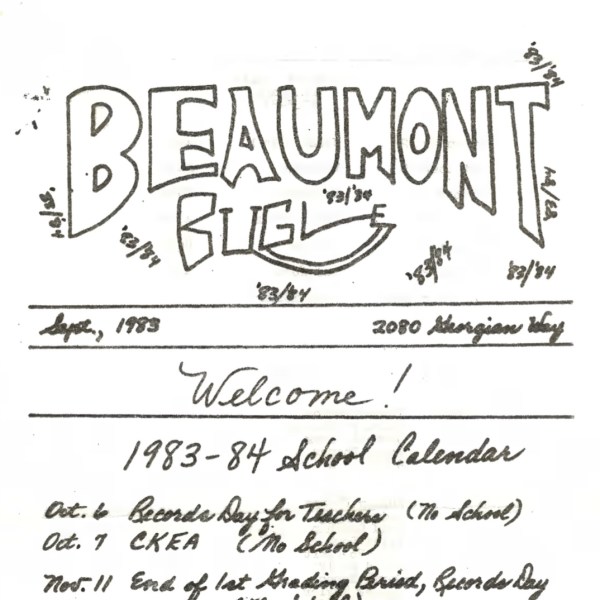 '83/'84
BEAUMONT
'83/'84
BUGLE
'83/'84
'83/'84
'83/'84
'83/'84
'83/'84
'83/'84
Sept., 1983 2080 Georgian Way
Welcome!
1983-84 School Calendar
Oct. 6 Records Day for Teachers (No School)
Oct. 7 CKEA (No School)
Nov. 11 End of 1st Grading Period, Records Day